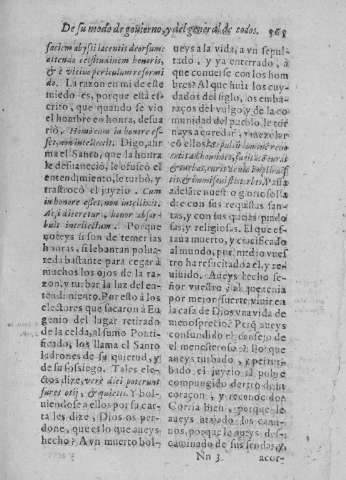 De su modo de gouierno, y del general de todos. 968
faciem abyssi iacentis deorsum:
attenda cæstitudinem honoris,
& è vicino periculum reformi
do. La razon en mi de este
miedo es, porque està es
crito, que quando se vio
el hombre en honra, desua
riò. Homo cum in honore es-
set, non intellexit. Digo, ahr
ma el Santo, que la honra
le desuaneciò, le ofuscò el
entendimiento, le turbò, y
trastrocò el juyzio. Cum
in honore esset, non intellexit.
honor absor
buit intellectum. Porque
no veys si son de temer las
honras, si lebantan polua-
reda bastante para cegar à
muchos los ojos de la ra-
zon, y turbar la luz del en-
tendimiento. Por esto à los
electores que sacaron à Eu
genio del lugar retirado
de la celda, al sumo Ponti-
ficado, los llama el Santo
ladrones de su quietud, y
de su sossiego. Tales elec
tos dize, verè dici poterunt
fures otij, & quietis. Y bol-
uiendose à ellos por su car
ta les dize, Dios os per-
done, que es lo que aueys
hecho? A vn muerto bol-
ueys a la vida, a vn sepul
tado, y ya enterrado, à
que conuerse con los hom
bres? Al que huìt los cuy
dados del siglo, los emba-
raços del vulgo, y de la co
munidad del pueblo, le tor
nays a enredar, y mezclar
cò ellos?
Passa
adelãte nuestro glorioso Pa
dre con sus requistas san
tas, y con sus quexas piado
sas, y religiosas. El que es-
taua muerto, y crucificado
al mundo, por medio vues
tro ha resucitado a el, y re
uiuido. Aueys hecho se-
ñor vuestro à al que tenia
por mejor suerte viuir en
la casa de Dios vna vida de
menosprecio? Porq̃ aueys
consundido el consejo de
el menesteroso? Porque
aueys turbado, y peruer-
tido, el juyzio al pobre
compungido
coraçon, y recto?
Corria bien, porque le
aueys atajado los cami-
nos, porque le aueys des-
caminado de sus sendas, y
Nn 3 acor-